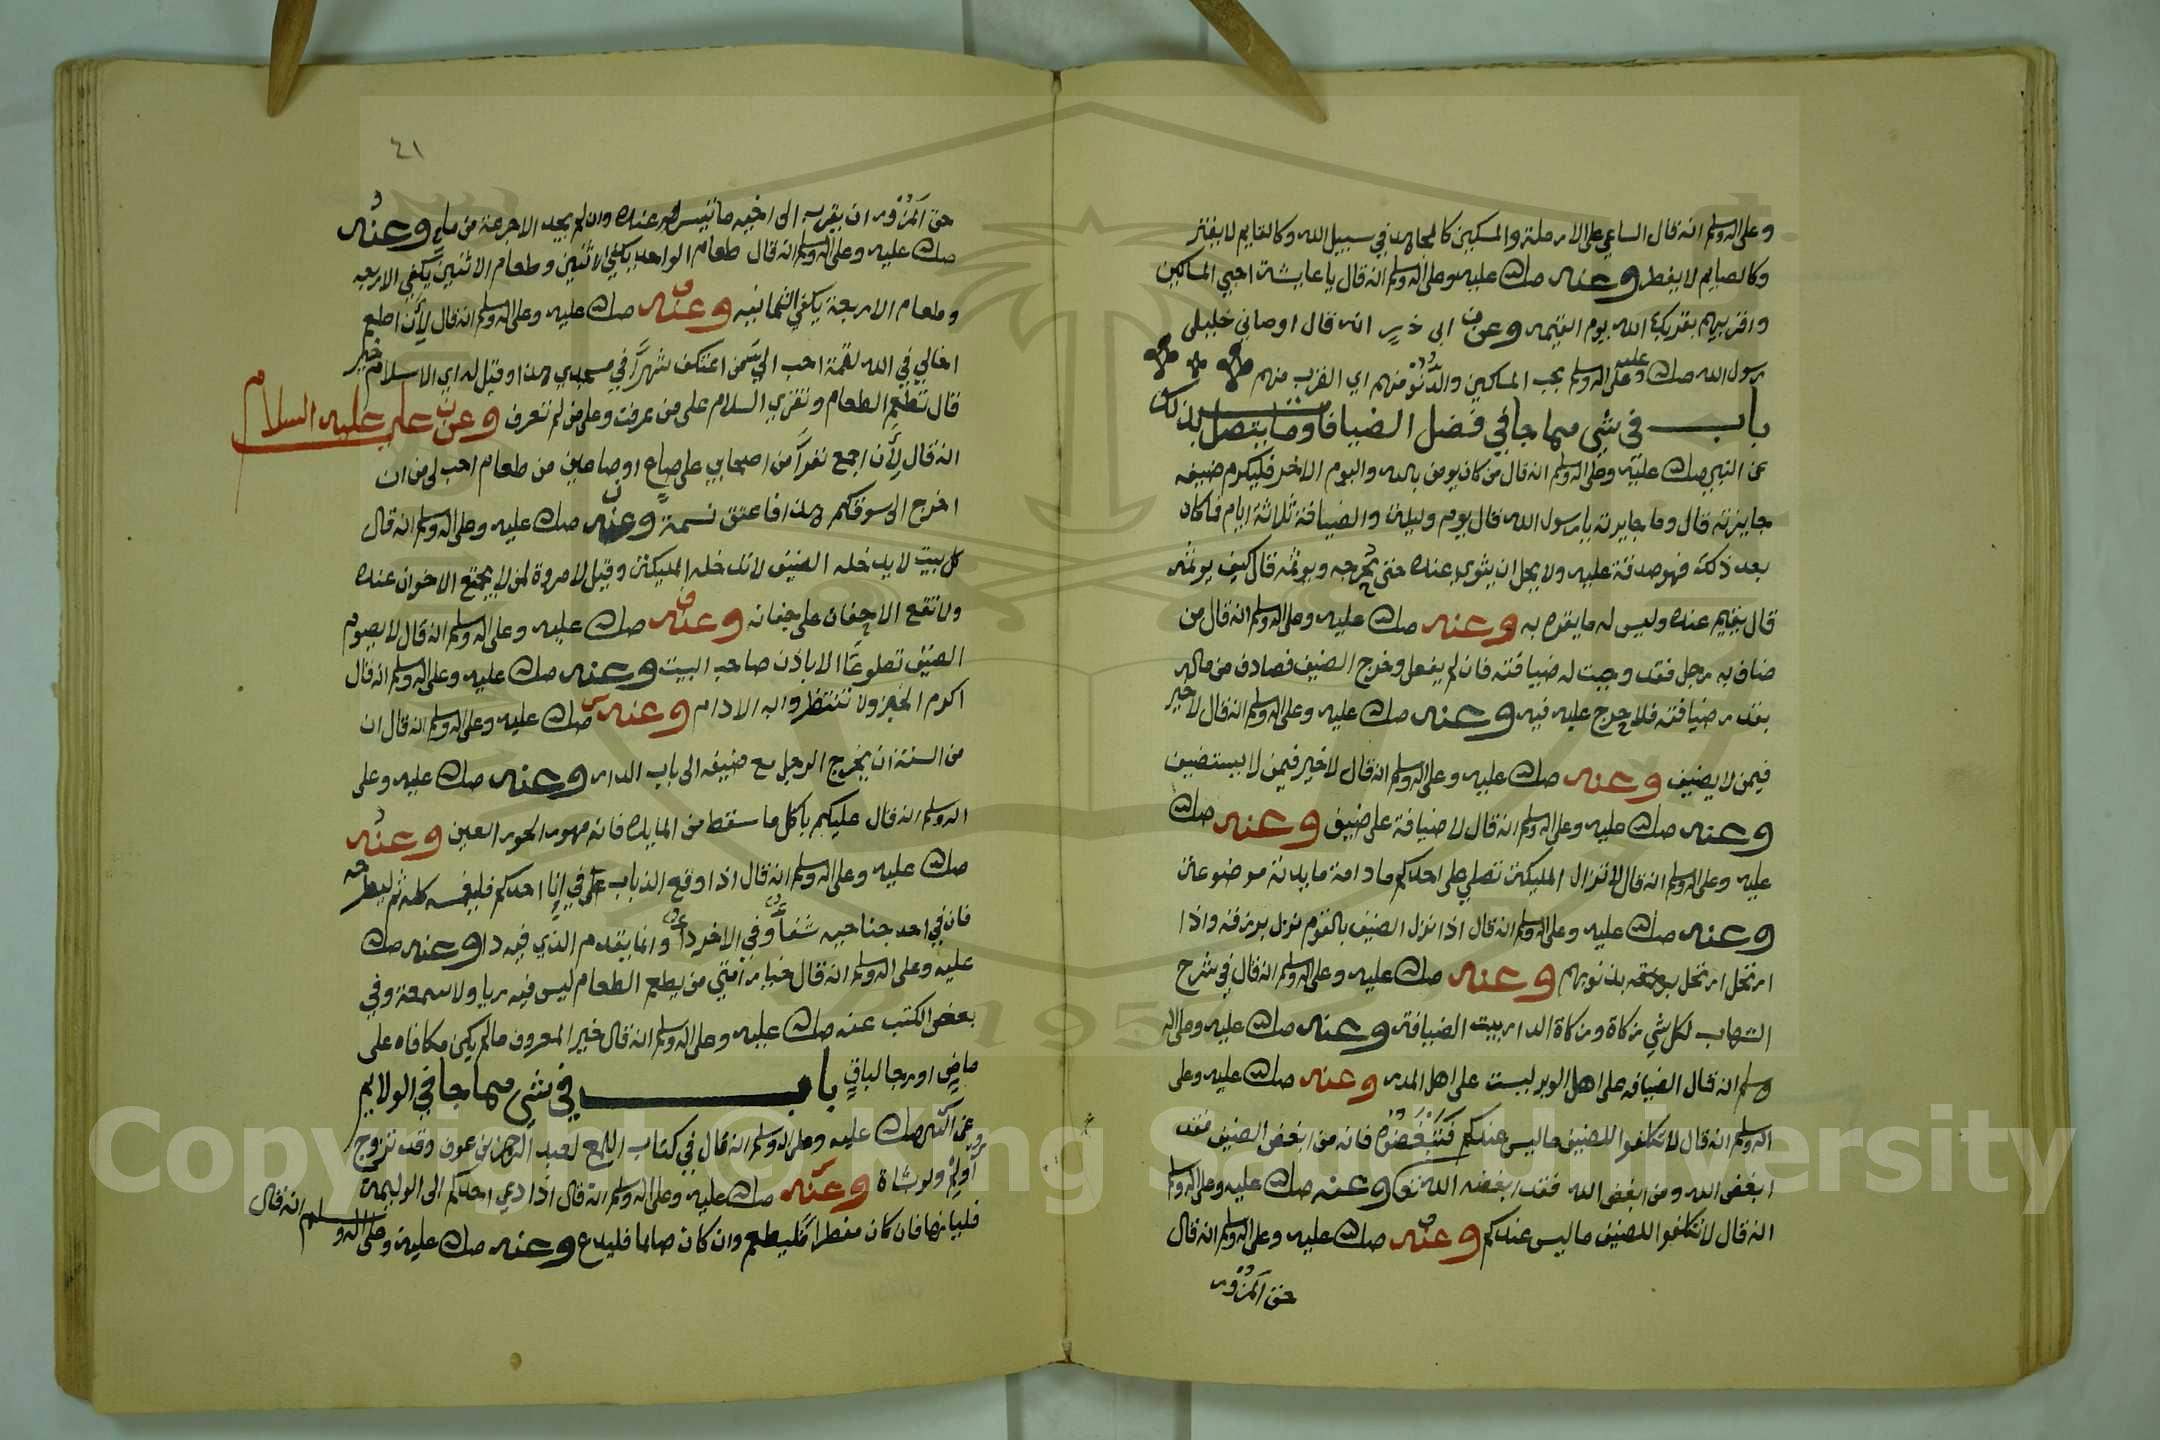 وعلى اله وسلم انه قال الساعي على الارملة والمسكين كالمجاهد في سبيل الله وكالقايم لا يفتر
وكالصايم لا يفطر وعنه صلى الله عليه وعلى اله وسلم انه قال يا عايشة احبي المساكين
واقربيهم يقربك الله يوم القيمه وعن ابي ذر انه قال اوصاني خليلي
رسول الله صلى الله عليه وعلى اله وسلم بحب المساكين والدنو منهم اي القرب منهم
باب في شي مما جا في فضل الضيافة وما يتصل بذلك
عن النبي صلى الله عليه وعلى اله وسلم انه قال من كان يومن بالله واليوم الاخر فليكرم ضيفه
جايزته قال وما جايزته يا رسول الله قال يوم وليلة والضيافة ثلاثة ايام فما كان
بعد ذلك فهو صدقة عليه ولا يحل ان يثوي عنده حتى يحرجه ويوثمه قال كيف يوثمه
قال يقيم عنده وليس له ما يقوم به وعنه صلى الله عليه وعلى اله وسلم انه قال من
ضاف به رجل فقد وجبت له ضيافته فان لم يفعل وخرج الضيف فصادف من ماله
بقدر ضيافته فلا حرج عليه فيه وعنه صلى الله عليه وعلى اله وسلم انه قال لا خير
فيمن لا يضيف وعنه صلى الله عليه وعلى اله وسلم انه قال لا خير فيمن لا يستضيف
وعنه صلى الله عليه وعلى اله وسلم انه قال لا ضيافة على ضيف وعنه صلى الله
عليه وعلى اله وسلم انه قال لا تزال المليكة تصلي على احدكم ما دامة مايدته موضوعة
وعنه صلى الله عليه وعلى اله وسلم انه قال اذا نزل الضيف بالقوم نزل برزقه واذا
ارتحل ارتحل بذنوبهم وعنه صلى الله عليه وعلى اله وسلم انه قال في شرح
الشهاب لكل شي زكاة وزكاة الدار بيت الضيافة وعنه صلى الله عليه وعلى اله
وسلم انه قال الضيافه على اهل الوبر ليست على اهل المدر وعنه صلى الله عليه وعلى
اله وسلم انه قال لا تكلفوا للضيف ما ليس عندكم فتبغضوه فانه من ابغض الضيف فقد
ابغض الله ومن ابغض الله فقد ابغضه الله وعنه صلى الله عليه وعلى اله وسلم
انه قال لا تكلفوا للضيف ما ليس عندكم وعنه صلى الله عليه وعلى اله وسلم انه قال
حق المزور
٤١
حق المزور ان يقرب الى اخيه ما تيسر عنده وان لم يجد الا جرعة من ماء وعنه
صلى الله عليه وعلى اله وسلم انه قال طعام الواحد يكفي الاثنين وطعام الاثنين يكفي الاربعه
وطعام الاربعة يكفي الثمانيه وعنه صلى الله عليه وعلى اله وسلم انه قال لأن اطعم
اخا لي في الله لقمة احب الي من اعتكف شهراً في مسجدي هذا وقيل له اي الاسلام خير
قال تطعم الطعام وتقري السلام على من عرفت وعلى من لم تعرف وعن علي عليه السلام
انه قال لأن اجمع نفراً من اصحابي على صاع او صاعين من طعام احب لي من ان
اخرج الى سوقكم هذا فاعتق نسمة وعنه صلى الله عليه وعلى اله وسلم انه قال
كل بيت لا يدخله الضيف لا تدخله المليكة وقيل لا مروة لمن لا يجتمع الاخوان عنده
ولا تقع الاجفان على جفانه وعنه صلى الله عليه وعلى اله وسلم انه قال لا يصوم
الضيف تطوعاً الا باذن صاحب البيت وعنه صلى الله عليه وعلى اله وسلم انه قال
اكرم الخبز ولا تنتظروا به الادام وعنه صلى الله عليه وعلى اله وسلم انه قال ان
من السنة ان يخرج الرجل مع ضيفه الى باب الدار وعنه صلى الله عليه وعلى
اله وسلم انه قال عليكم باكل ما سقط من المايده فانه مهور الحور العين وعنه
صلى الله عليه وعلى اله وسلم انه قال اذا وقع الذباب في انا احدكم فليغمسه كله ثم ليطرحه
فان في احد جناحيه شفاً وفي الاخر داً وانما يقدم الذي فيه دا وعنه صلى الله
عليه وعلى اله وسلم انه قال خيار امتي من يطعم الطعام ليس فيه ريا ولا سمعة وفي
بعض الكتب عنه صلى الله عليه وعلى اله وسلم انه قال خير المعروف ما لم يكن مكافاه على
ماض او رجا لباق باب في شي مما جا في الولايم
روي عن النبي صلى الله عليه وعلى اله وسلم انه قال في كتاب اللمع لعبد الرحمن بن عوف وقد تزوج
أولم ولو بشاة وعنه صلى الله عليه وعلى اله وسلم انه قال اذا دعي احدكم الى الوليمة
فلياتها فان كان مفطراً فليطعم وان كان صايما فليدع وعنه صلى الله عليه وعلى اله وسلم انه قال
Copyright © King Saud University
1957